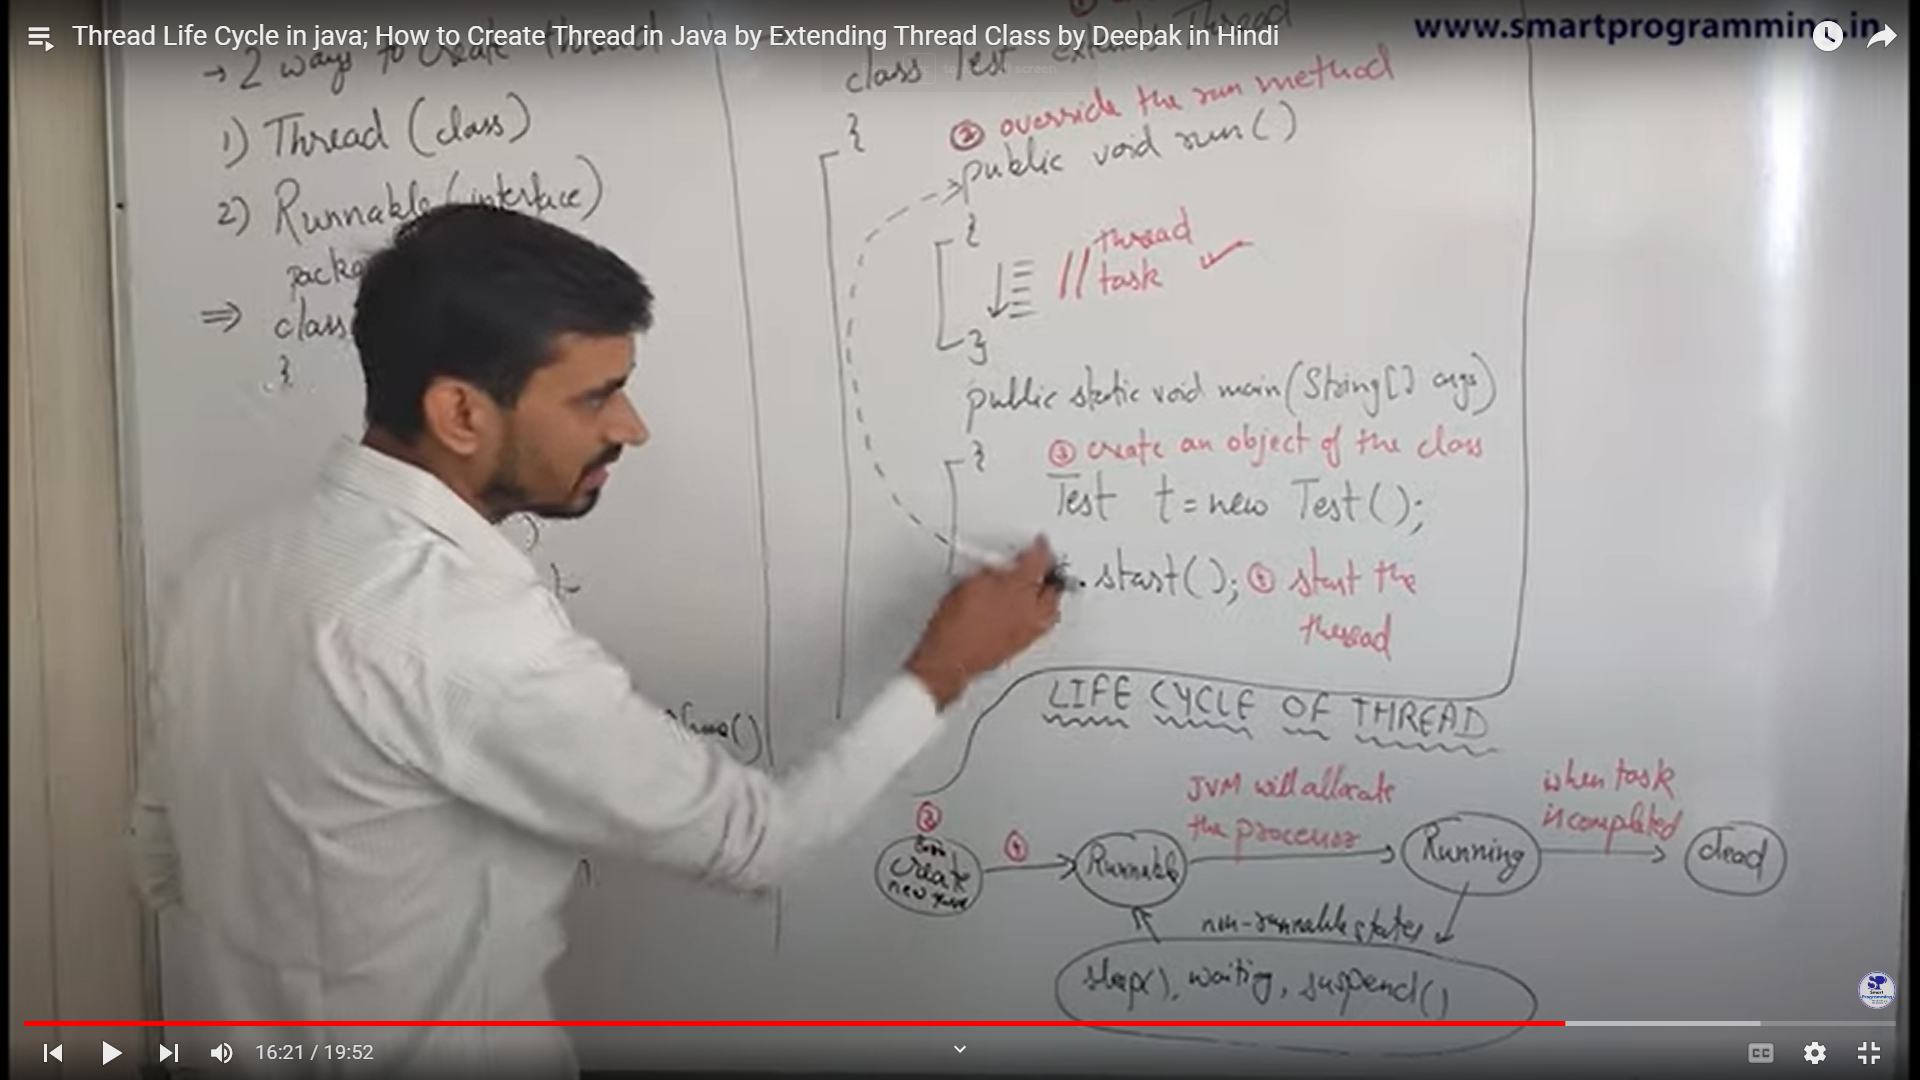 Thread Life Cycle in java; How to Create Thread in Java by Extending Thread Class by Deepak in Hindi
www.smartprogramming.in
→ 2 ways to create thread
1) Thread (class)
2) Runnable (interface)
⇒ class
}
class Test extends Thread
{
② override the run method
public void run()
{
// thread
task ✓
}
public static void main(String[] args)
{
③ create an object of the class
Test t = new Test();
t.start(); ④ start the
thread
LIFE CYCLE OF THREAD
③
create
④
Runnable
JVM will allocate
the processor
Running
when task
is completed
dead
non-runnable states
sleep(), waiting, suspend()
16:21 / 19:52
CC